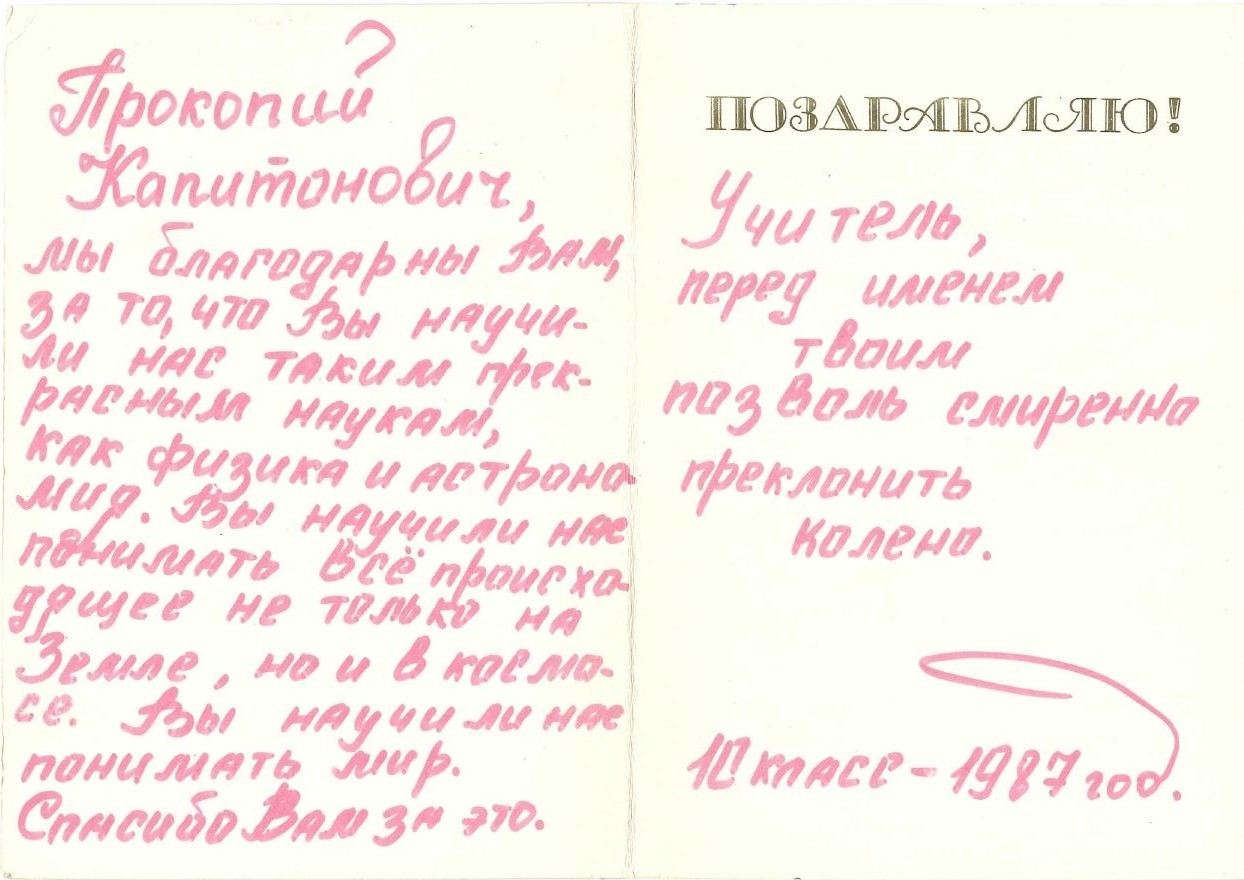 Прокопий
Капитонович,
мы благодарны Вам,
за то, что Вы научи-
ли нас таким прек-
расным наукам,
как физика и астроно-
мия. Вы научили нас
понимать всё происхо-
дящее не только на
Земле, но и в космо-
се. Вы научили нас
понимать мир.
Спасибо Вам за это.
ПОЗДРАВЛЯЮ!
Учитель,
перед именем
твоим
позволь смиренно
преклонить
колено.
10 класс - 1987 год.